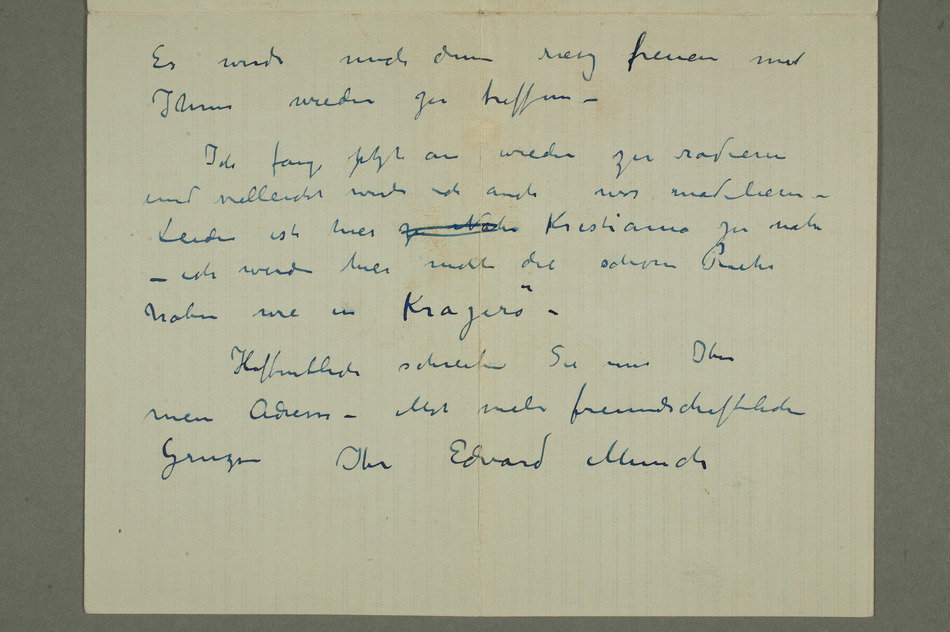 Es wurde mich denn riesig freuen mit
Ihnen wieder zu treffen –
Ich fange jetzt an wieder zu radieren
und vielleicht werde ich auch was modelieren –
Leider ist hier zu Nahe Kristiania zu nahe
– ich werde hier nicht die schöne Ruhe
haben wie in Kragerö –
Hoffentlich schreiben Sie mir Ihre
neue Adresse – Mit viele freundschaftlichen
Gruze Ihr Edvard Munch